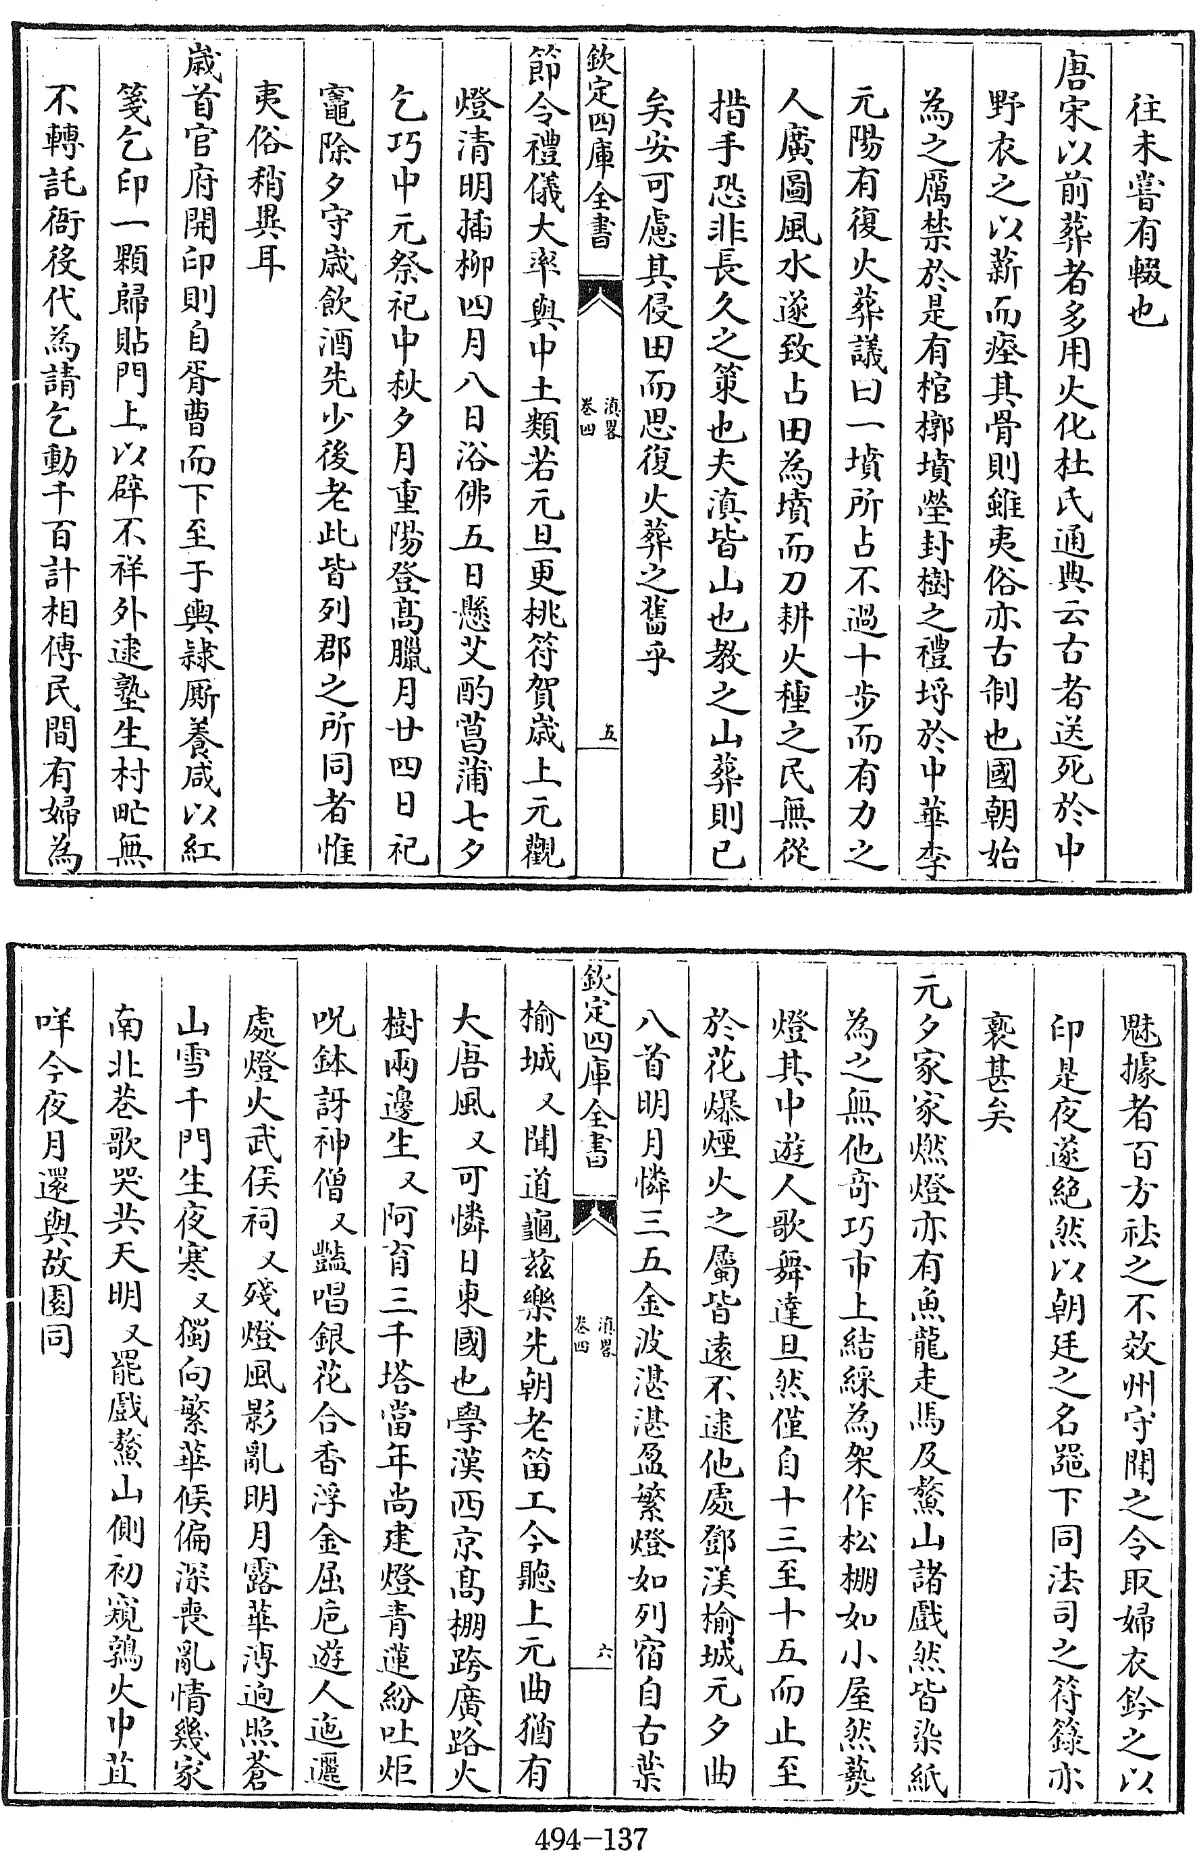 往未嘗有輟也
唐宋以前葬者多用火化杜氏通典云古者送死於中
野衣之以薪而瘞其骨則雖夷俗亦古制也國朝始
為之厲禁於是有棺槨墳塋封樹之禮埒於中華李
元陽有復火葬議曰一墳所占不過十步而有力之
人廣圖風水遂致占田為墳而刀耕火種之民無從
措手恐非長久之策也夫滇皆山也教之山葬則已
矣安可慮其侵田而思復火葬之舊乎
欽定四庫全書
滇畧
卷四
五
節令禮儀大率與中土類若元旦更桃符賀歲上元觀
燈清明插柳四月八日浴佛五日懸艾酌菖蒲七夕
乞巧中元祭祀中秋夕月重陽登高臘月廿四日祀
竈除夕守歲飲酒先少後老此皆列郡之所同者惟
夷俗稍異耳
歲首官府開印則自胥曹而下至于輿隸厮養咸以紅
箋乞印一顆歸貼門上以辟不祥外逮塾生村甿無
不轉託衙役代為請乞動千百計相傳民間有婦為
魅據者百方祛之不效州守聞之令取婦衣鈐之以
印是夜遂絕然以朝廷之名器下同法司之符籙亦
褻甚矣
元夕家家燃燈亦有魚龍走馬及鰲山諸戲然皆染紙
為之無他奇巧市上結綵為架作松棚如小屋然爇
燈其中遊人歌舞達旦然僅自十三至十五而止至
於花爆煙火之屬皆遠不逮他處鄧渼榆城元夕曲
八首明月憐三五金波湛湛盈繁燈如列宿自古葉
欽定四庫全書
滇畧
卷四
六
榆城又聞道龜茲樂先朝老笛工今聽上元曲猶有
大唐風又可憐日東國也學漢西京高棚跨廣路火
樹兩邊生又阿育三千塔當年尚建燈青蓮紛吐炬
呪鉢訝神僧又豔唱銀花合香浮金屈卮遊人迤邐
處燈火武侯祠又殘燈風影亂明月露華溥逈照蒼
山雪千門生夜寒又獨向繁華候偏深喪亂情幾家
南北巷歌哭共天明又罷戲鰲山側初窺鶉火中苴
咩今夜月還與故園同
494-137